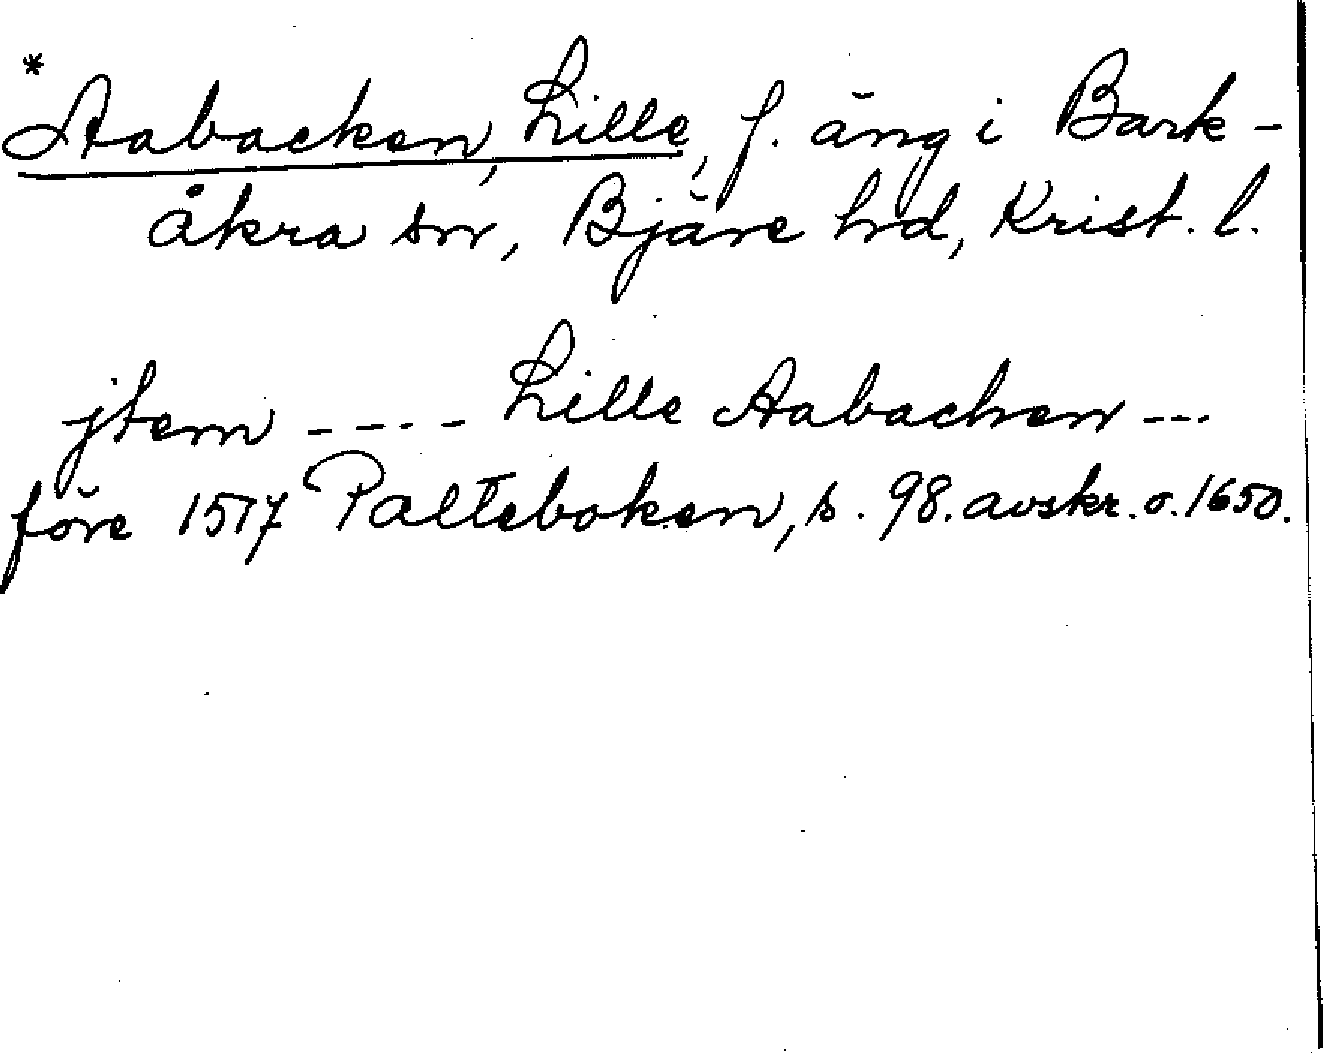 *Aabacken, Lille, f. äng i Bark-
åkra sn, Bjäre hd, Krist. l.
jtem ---- Lille Aabachen ---
före 1517 Palteboken, s. 98. avskr. o. 1650.